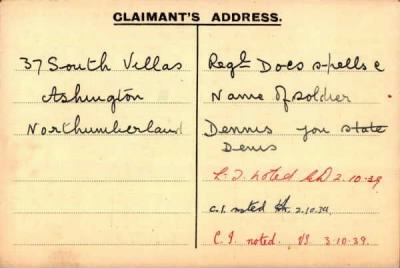 CLAIMANT'S ADDRESS.
37 South Villas
Ashington
Northumberland
Regtl Docs spells
Name of soldier
Dennis you state
Denis
L.I. noted 2.10.39
C.I. noted 2.10.39
C.I. noted. VS 3.10.39.